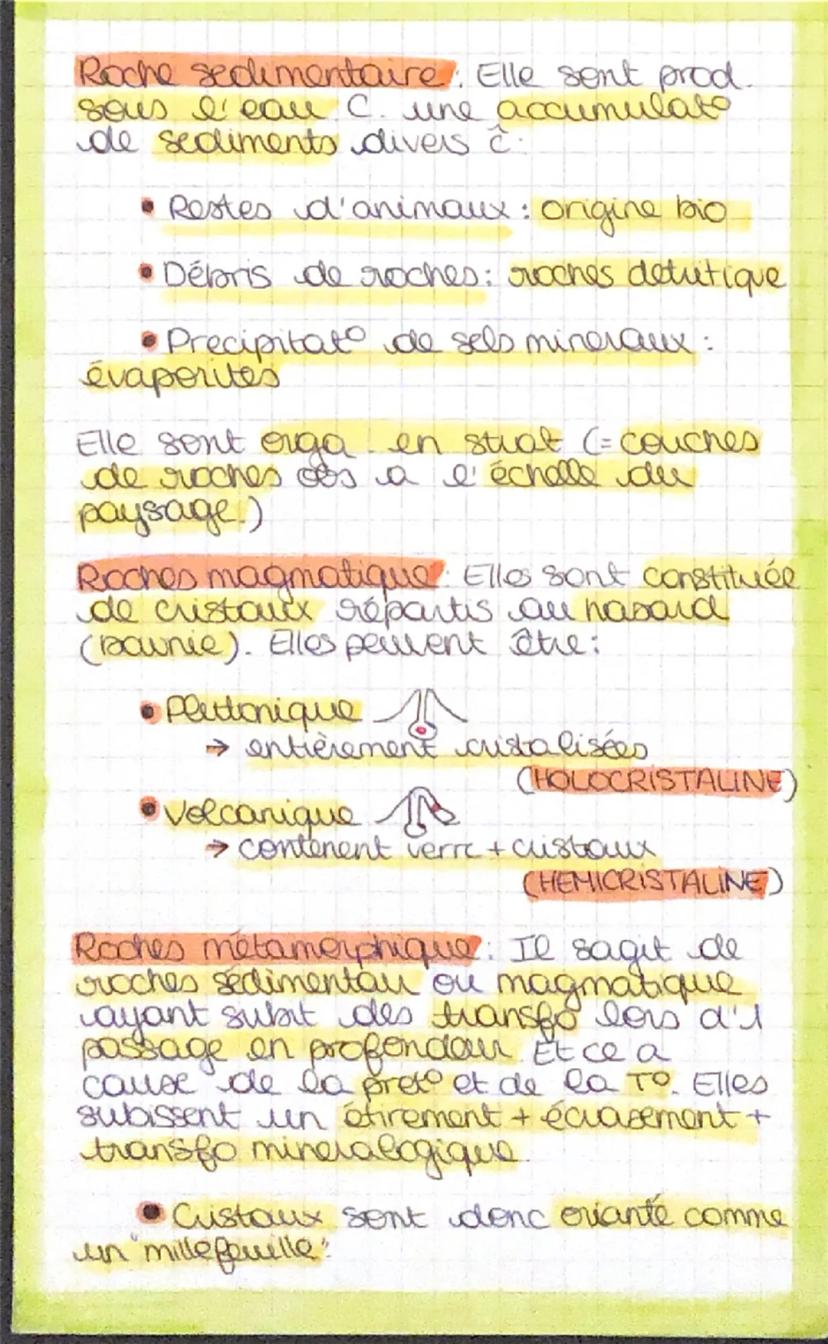 Roche sedimentaire : Elle sont prod.
sous l'eau. C. une accumulat°
de sediments divers ĉ :
• Restes d'animaux : origine bio
• Débris de roches : roches detritique
• Precipitat° de sels mineraux :
évaporites
Elle sont orga. en strat (= couches
de roches obs a l'échelle du
paysage.)
Roches magmatique : Elles sont constituée
de cristaux répartis au hasard
(
). Elles peuvent être :
• Plutonique
→ entièrement cristalisées
(HOLOCRISTALINE)
• Volcanique
→ contenent verre + cristaux
(HEMICRISTALINE)
Roches métamorphique : Il sagit de
roches sédimentair ou magmatique
ayant subit des transfo lors d'1
passage en profondeur. Et ce a
cause de la pret° et de la T°. Elles
subissent un étirement + écrasement +
transfo mineralogique.
• Cristaux sont donc orianté comme
un "millefeuille".